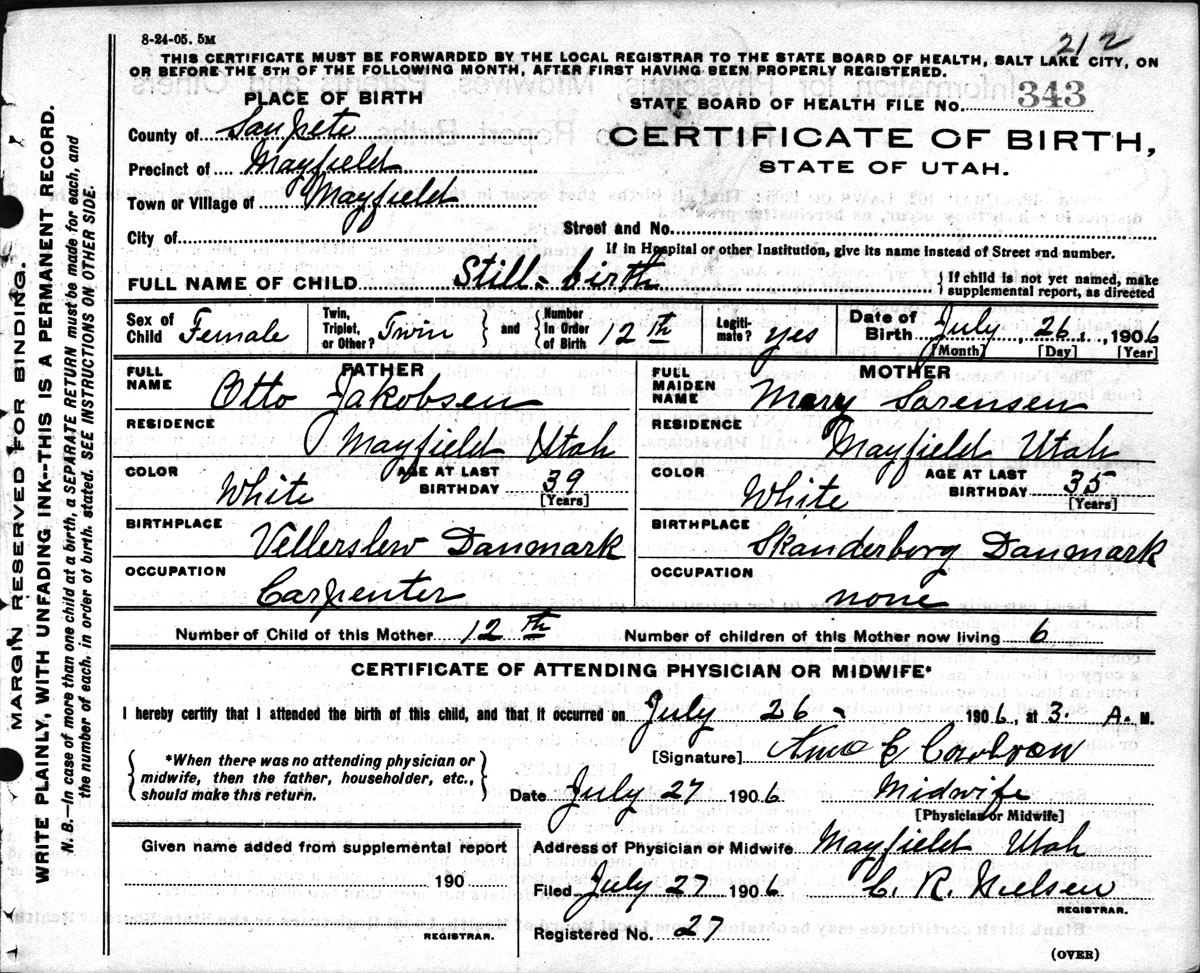 8-24-05. 5M
212
THIS CERTIFICATE MUST BE FORWARDED BY THE LOCAL REGISTRAR TO THE STATE BOARD OF HEALTH, SALT LAKE CITY, ON
OR BEFORE THE 5TH OF THE FOLLOWING MONTH, AFTER FIRST HAVING BEEN PROPERLY REGISTERED.
MARGIN RESERVED FOR BINDING.
WRITE PLAINLY, WITH UNFADING INK--THIS IS A PERMANENT RECORD.
N. B.--In case of more than one child at a birth, a SEPARATE RETURN must be made for each, and
the number of each, in order of birth, stated. SEE INSTRUCTIONS ON OTHER SIDE.
PLACE OF BIRTH
County of Sanpete
Precinct of Mayfield
Town or Village of Mayfield
City of
STATE BOARD OF HEALTH FILE No. 343
CERTIFICATE OF BIRTH,
STATE OF UTAH.
Street and No.
If in Hospital or other Institution, give its name instead of Street and number.
FULL NAME OF CHILD Still-birth
{ If child is not yet named, make
supplemental report, as directed
Sex of Child Female
Twin, Triplet, or Other? Twin } and { Number In Order of Birth 12th
Legitimate? yes
Date of Birth July, 26, 1906
[Month] [Day] [Year]
FATHER
FULL NAME Otto Jakobsen
RESIDENCE Mayfield Utah
COLOR White AGE AT LAST BIRTHDAY 39 [Years]
BIRTHPLACE Vellerslew Danmark
OCCUPATION Carpenter
MOTHER
FULL MAIDEN NAME Mary Sorensen
RESIDENCE Mayfield Utah
COLOR White AGE AT LAST BIRTHDAY 35 [Years]
BIRTHPLACE Skanderborg Danmark
OCCUPATION none
Number of Child of this Mother 12th Number of children of this Mother now living 6
CERTIFICATE OF ATTENDING PHYSICIAN OR MIDWIFE*
I hereby certify that I attended the birth of this child, and that it occurred on July 26- 1906, at 3. A. M.
{ *When there was no attending physician or
midwife, then the father, householder, etc.,
should make this return. }
[Signature]
Date July 27 1906 Midwife
[Physician or Midwife]
Given name added from supplemental report
190
REGISTRAR.
Address of Physician or Midwife Mayfield Utah
Filed July 27 1906 C. R. Nielsen
REGISTRAR.
Registered No. 27
(OVER)